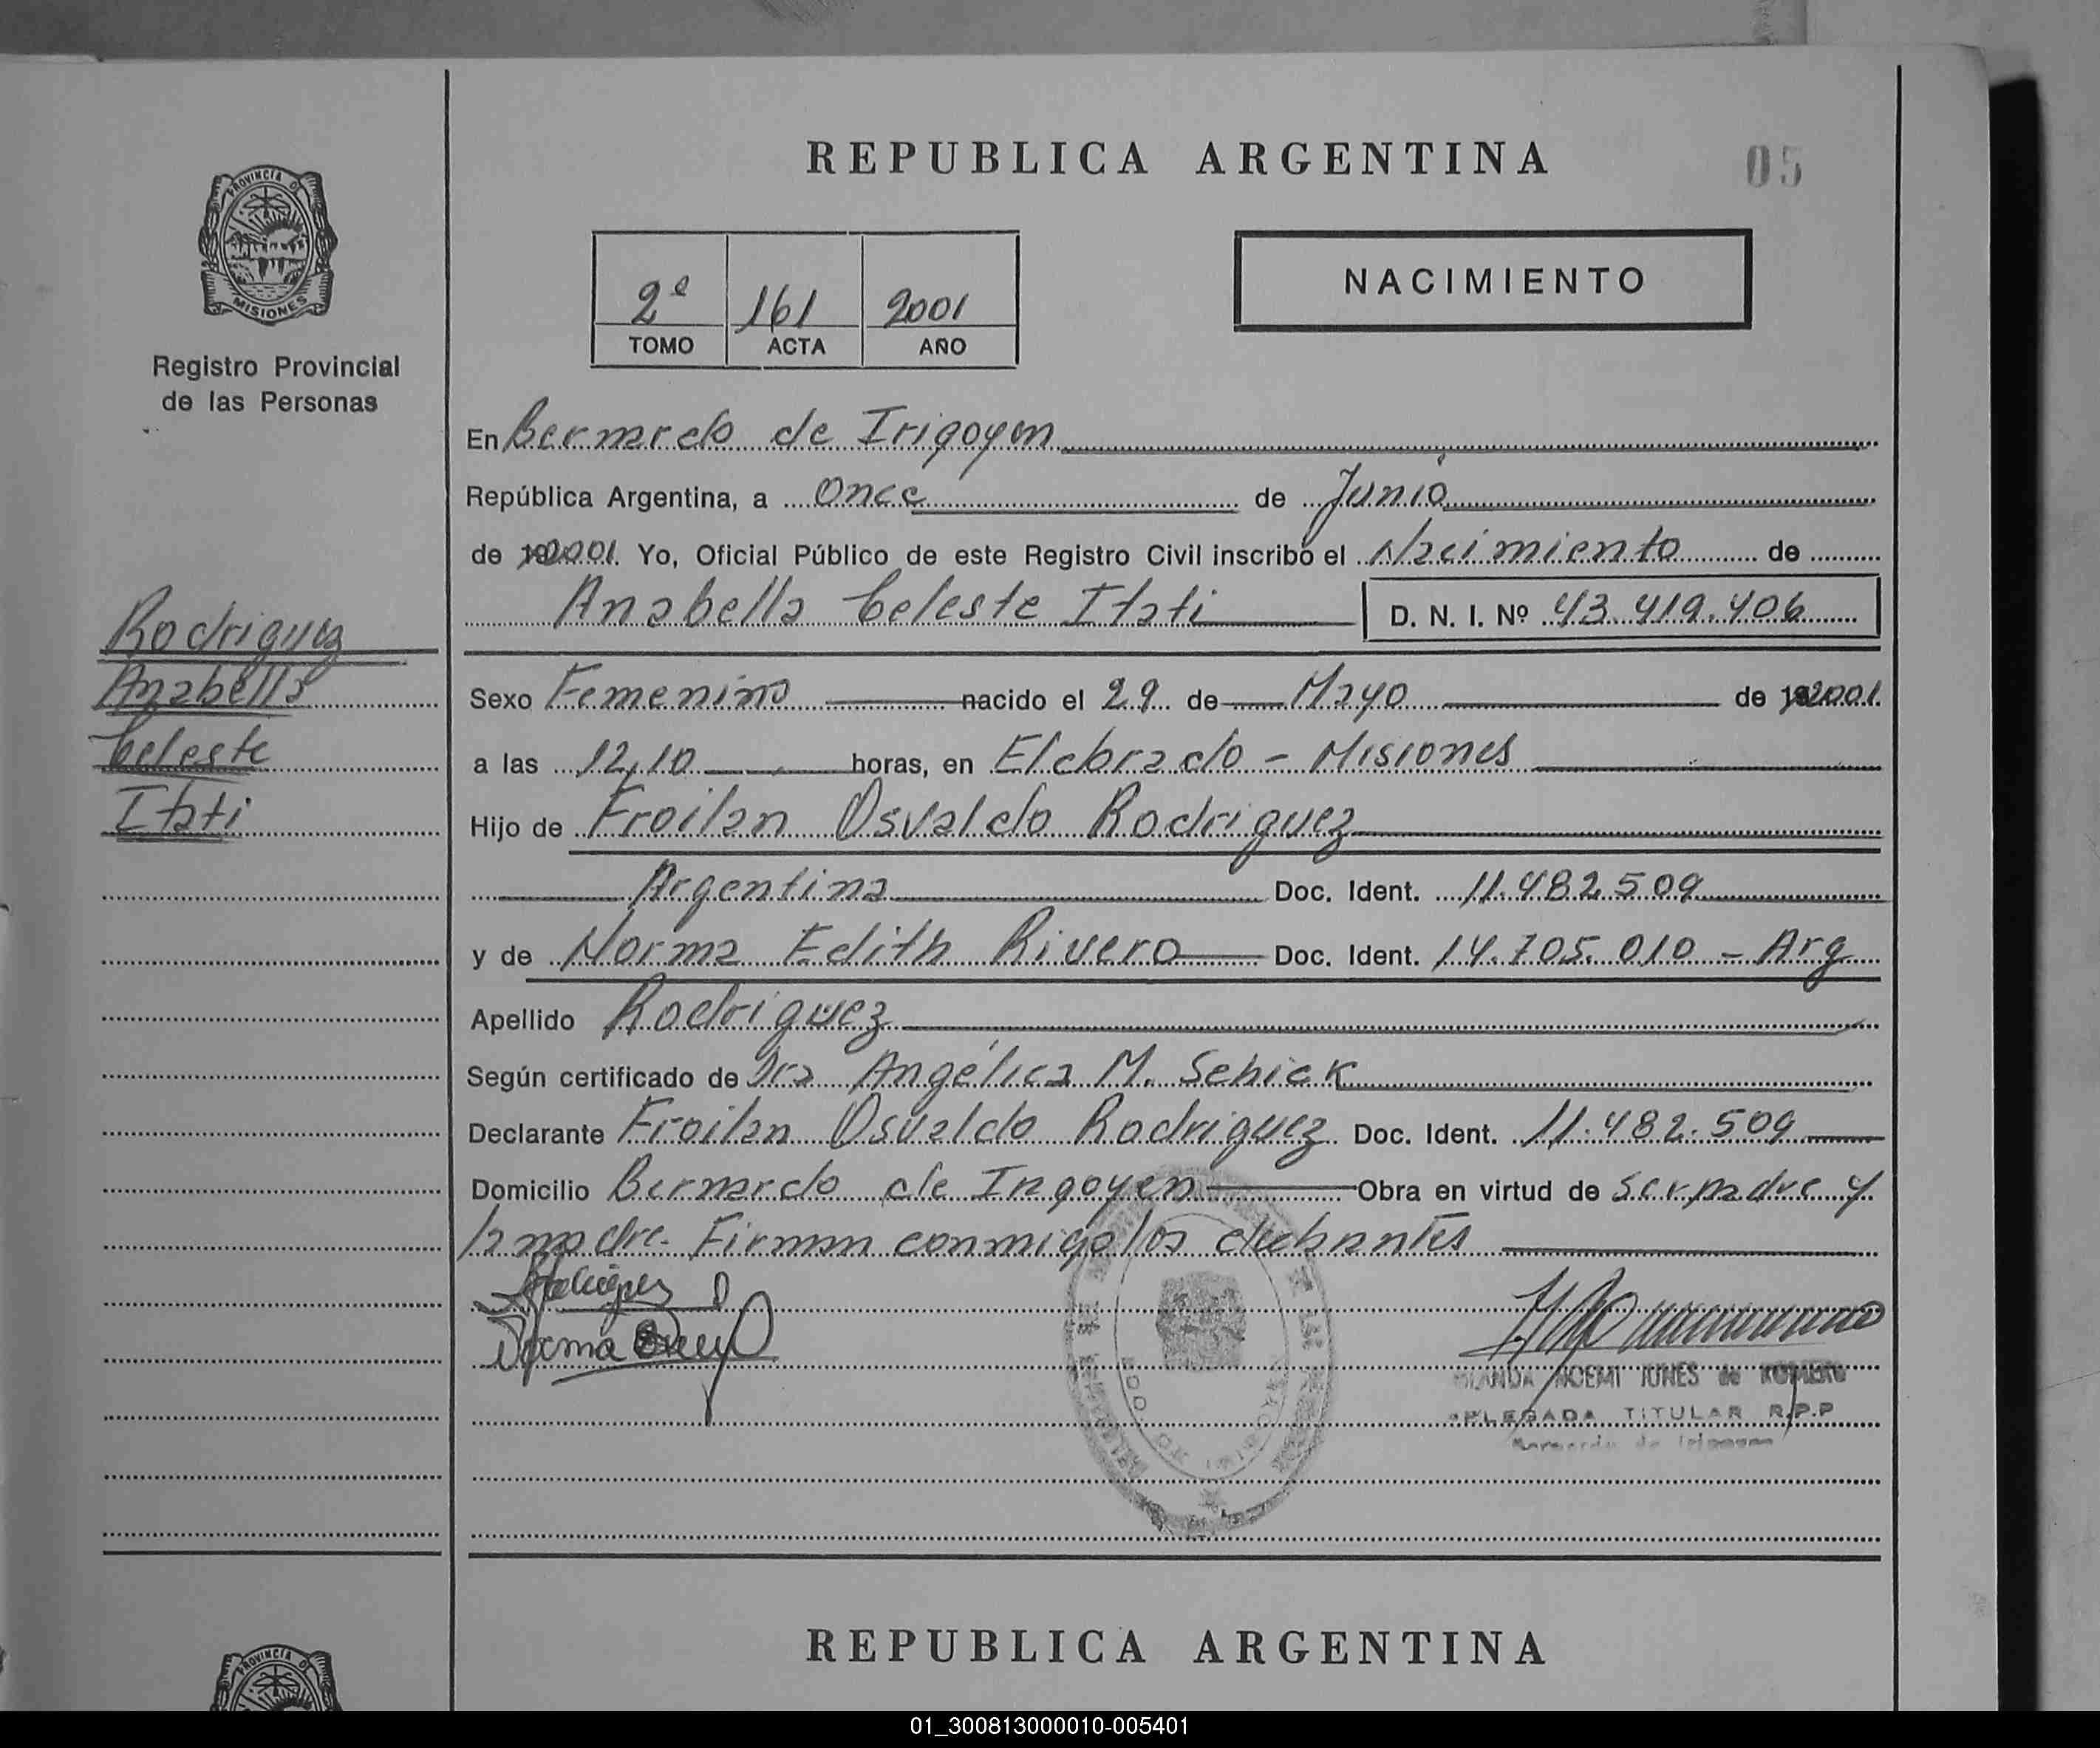 REPUBLICA ARGENTINA
05
PROVINCIA DE
MISIONES
Registro Provincial
de las Personas
2º 161 2001
TOMO ACTA AÑO
NACIMIENTO
En Bernardo de Irigoyen
República Argentina, a Once de Junio
de 192001. Yo, Oficial Público de este Registro Civil inscribo el Nacimiento de
Anabella Celeste Itati D. N. I. Nº 43.419.406
Rodriguez
Anabella
Celeste
Itati
Sexo Femenino nacido el 29 de Mayo de 192001.
a las 12,10 horas, en Eldorado - Misiones
Hijo de Froilan Osvaldo Rodriguez
Argentina Doc. Ident. 11.482.509
y de Norma Edith Rivero Doc. Ident. 14.705.010 - Arg
Apellido Rodriguez
Según certificado de Dra Angélica M. Schick
Declarante Froilan Osvaldo Rodriguez Doc. Ident. 11.482.509
Domicilio Bernardo de Irigoyen Obra en virtud de ser padre y
la madre. Firman conmigo los
Norma
NOEMI JUNES de ROMERO
DELEGADA TITULAR R.P.P
Bernardo de Irigoyen
REPUBLICA ARGENTINA
PROVINCIA DE
01_300813000010-005401